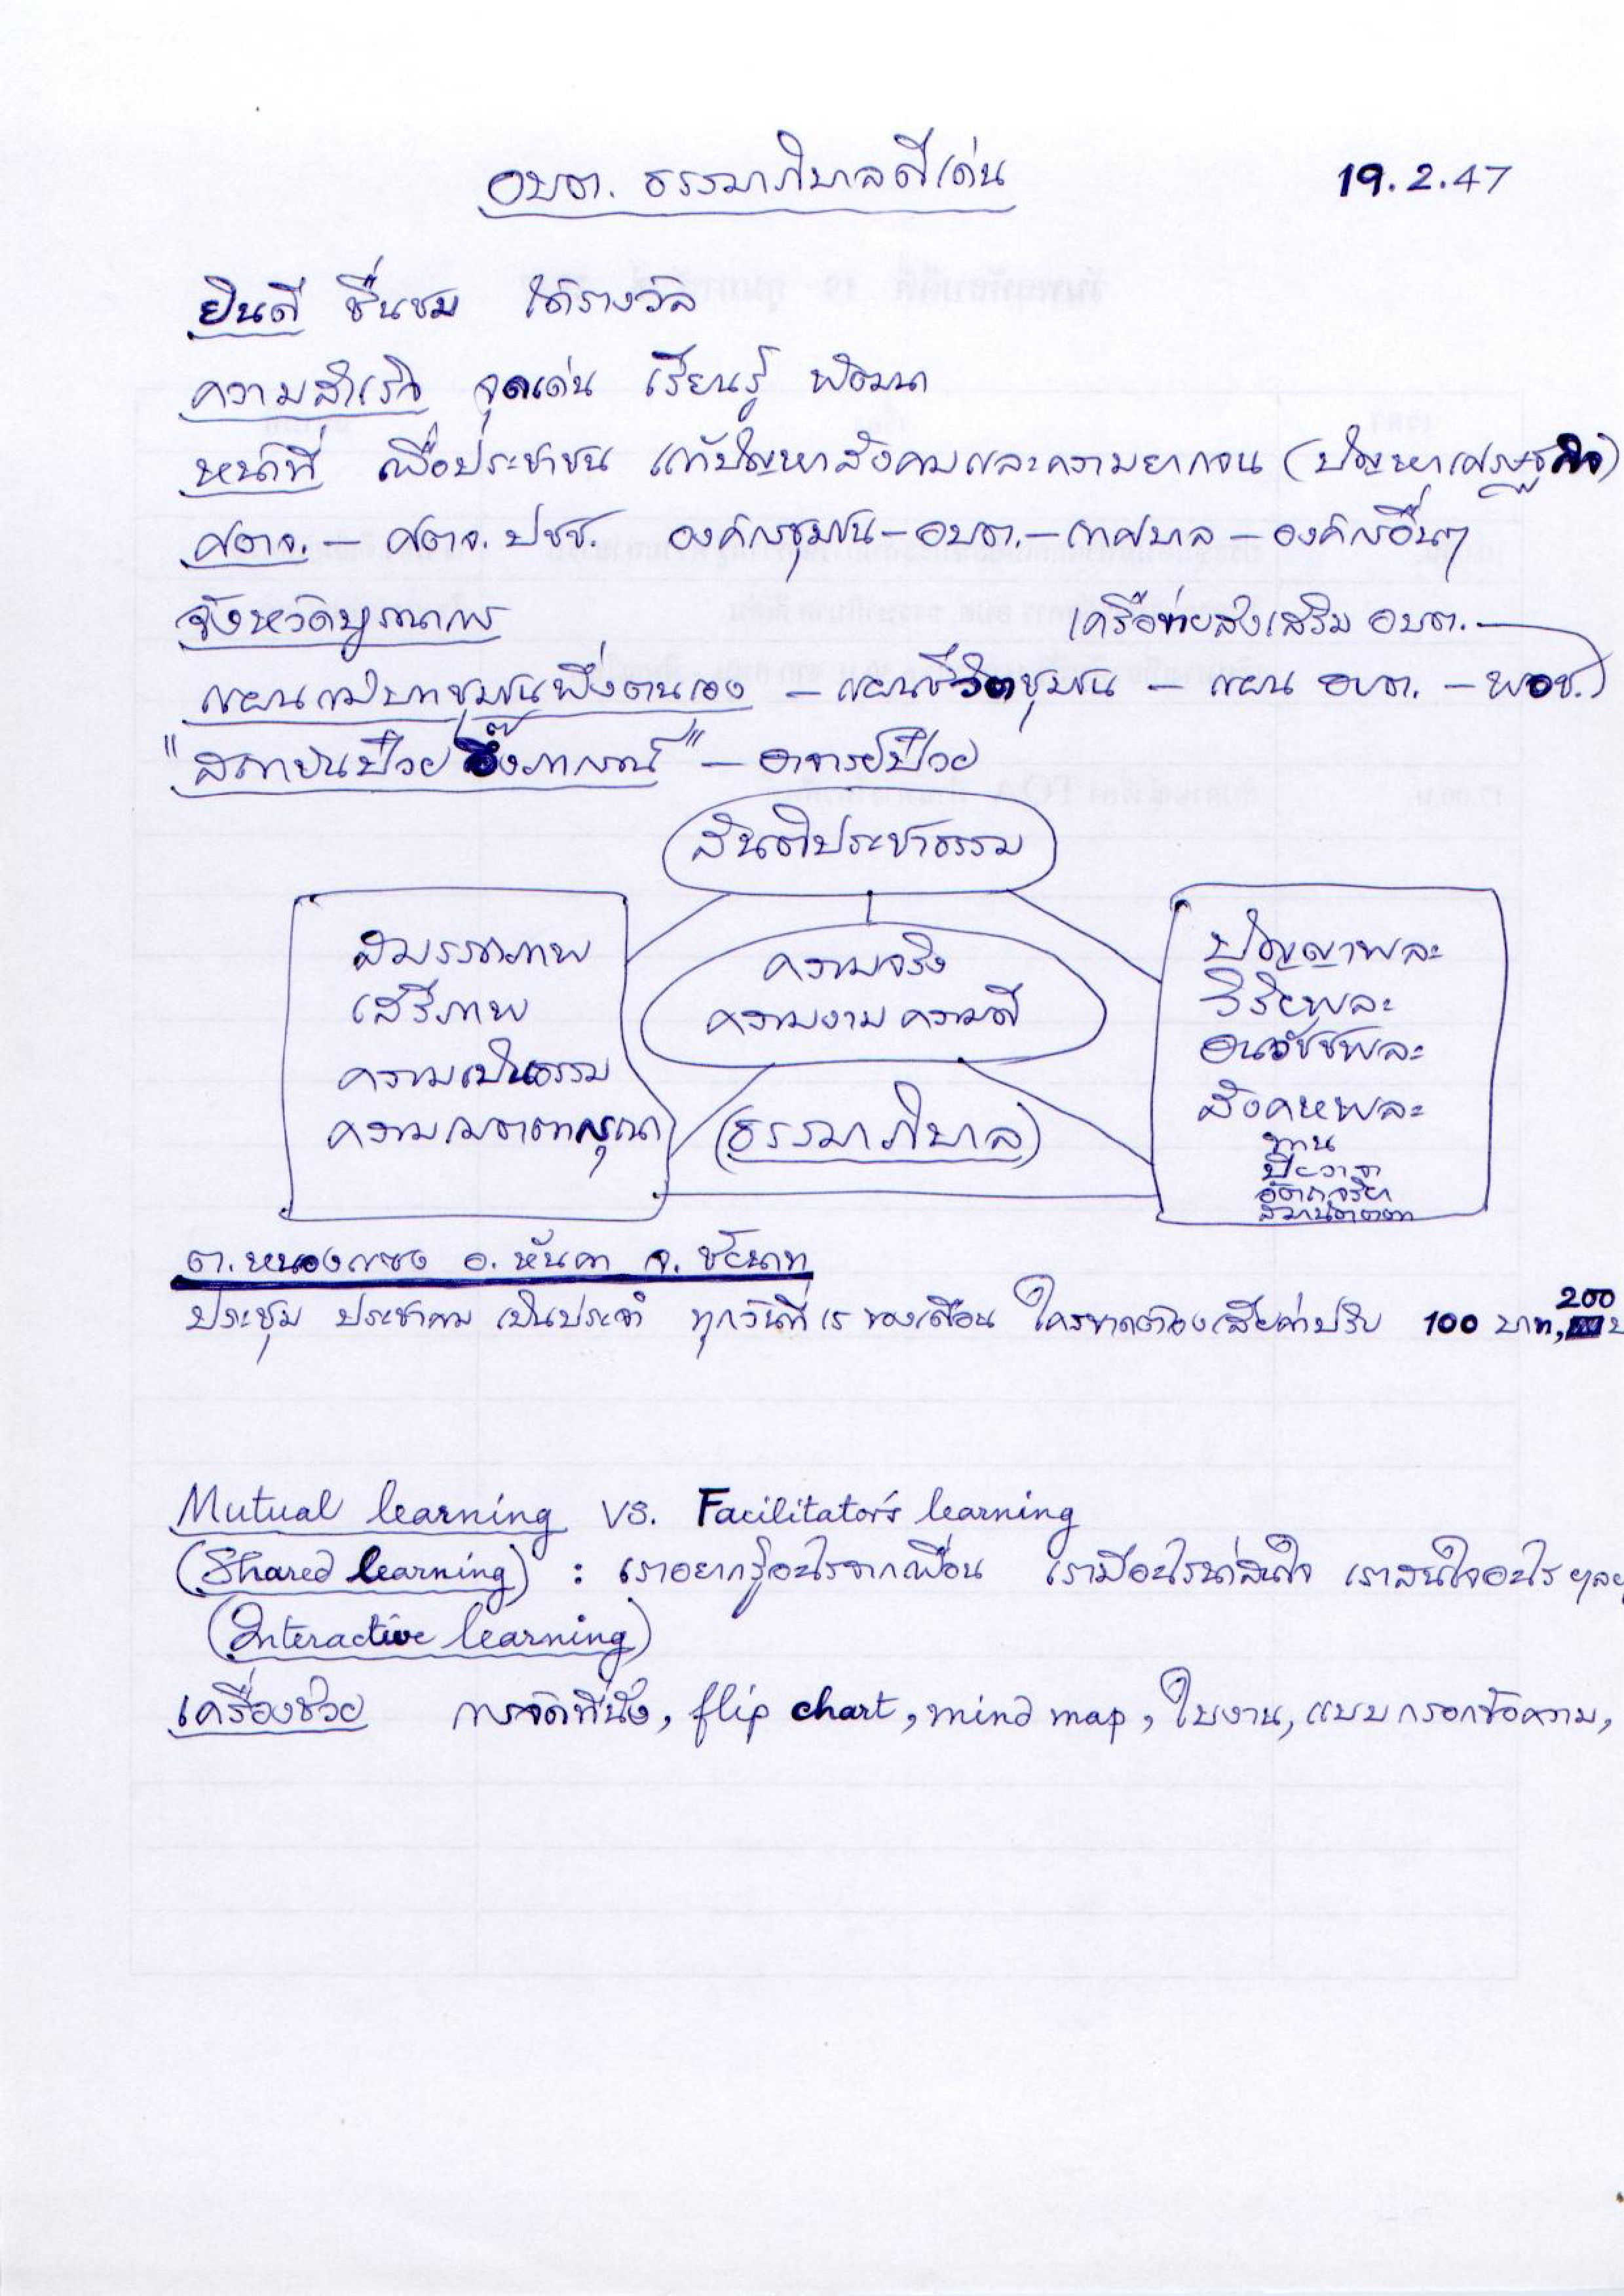 อบต. ธรรมาภิบาลดีเด่น 19.2.47
ยินดี ชื่นชม ได้รางวัล
ความสำเร็จ จุดเด่น เรียนรู้ พัฒนา
หน้าที่ เพื่อประชาชน แก้ปัญหาสังคมและความยากจน (ปัญหาเศรษฐกิจ)
ศตจ. – ศตจ. ปชช. องค์กรชุมชน – อบต. – เทศบาล – องค์กรอื่นๆ
จังหวัดบูรณาการ เครือข่ายส่งเสริม อบต.
แผนแม่บทชุมชนพึ่งตนเอง – แผนชีวิตชุมชน – แผน อบต. – พอช.)
"สถาบันป๋วย อึ๊งภากรณ์" – อาจารย์ป๋วย
สันติประชาธรรม
สมรรถภาพ
เสรีภาพ
ความเป็นธรรม
ความเมตตากรุณา
ความจริง
ความงาม ความดี
(ธรรมาภิบาล)
ปัญญาพละ
วิริยพละ
อนวัชชพละ
สังคหพละ
ทาน
ปิยวาจา
อัตถจริยา
สมานัตตตา
ต. หนองแซง อ. หันคา จ. ชัยนาท
ประชุม ประชาคม เป็นประจำ ทุกวันที่ 15 ของเดือน ใครขาดต้องเสียค่าปรับ 100 บาท, 200 บ
Mutual learning vs. Facilitator's learning
(Shared learning) : เราอยากรู้อะไรจากเพื่อน เรามีอะไรน่าสนใจ เราสนใจอะไร ฯลฯ
(Interactive learning)
เครื่องช่วย การจัดที่นั่ง, flip chart, mind map, ใบงาน, แบบกรอกข้อความ,